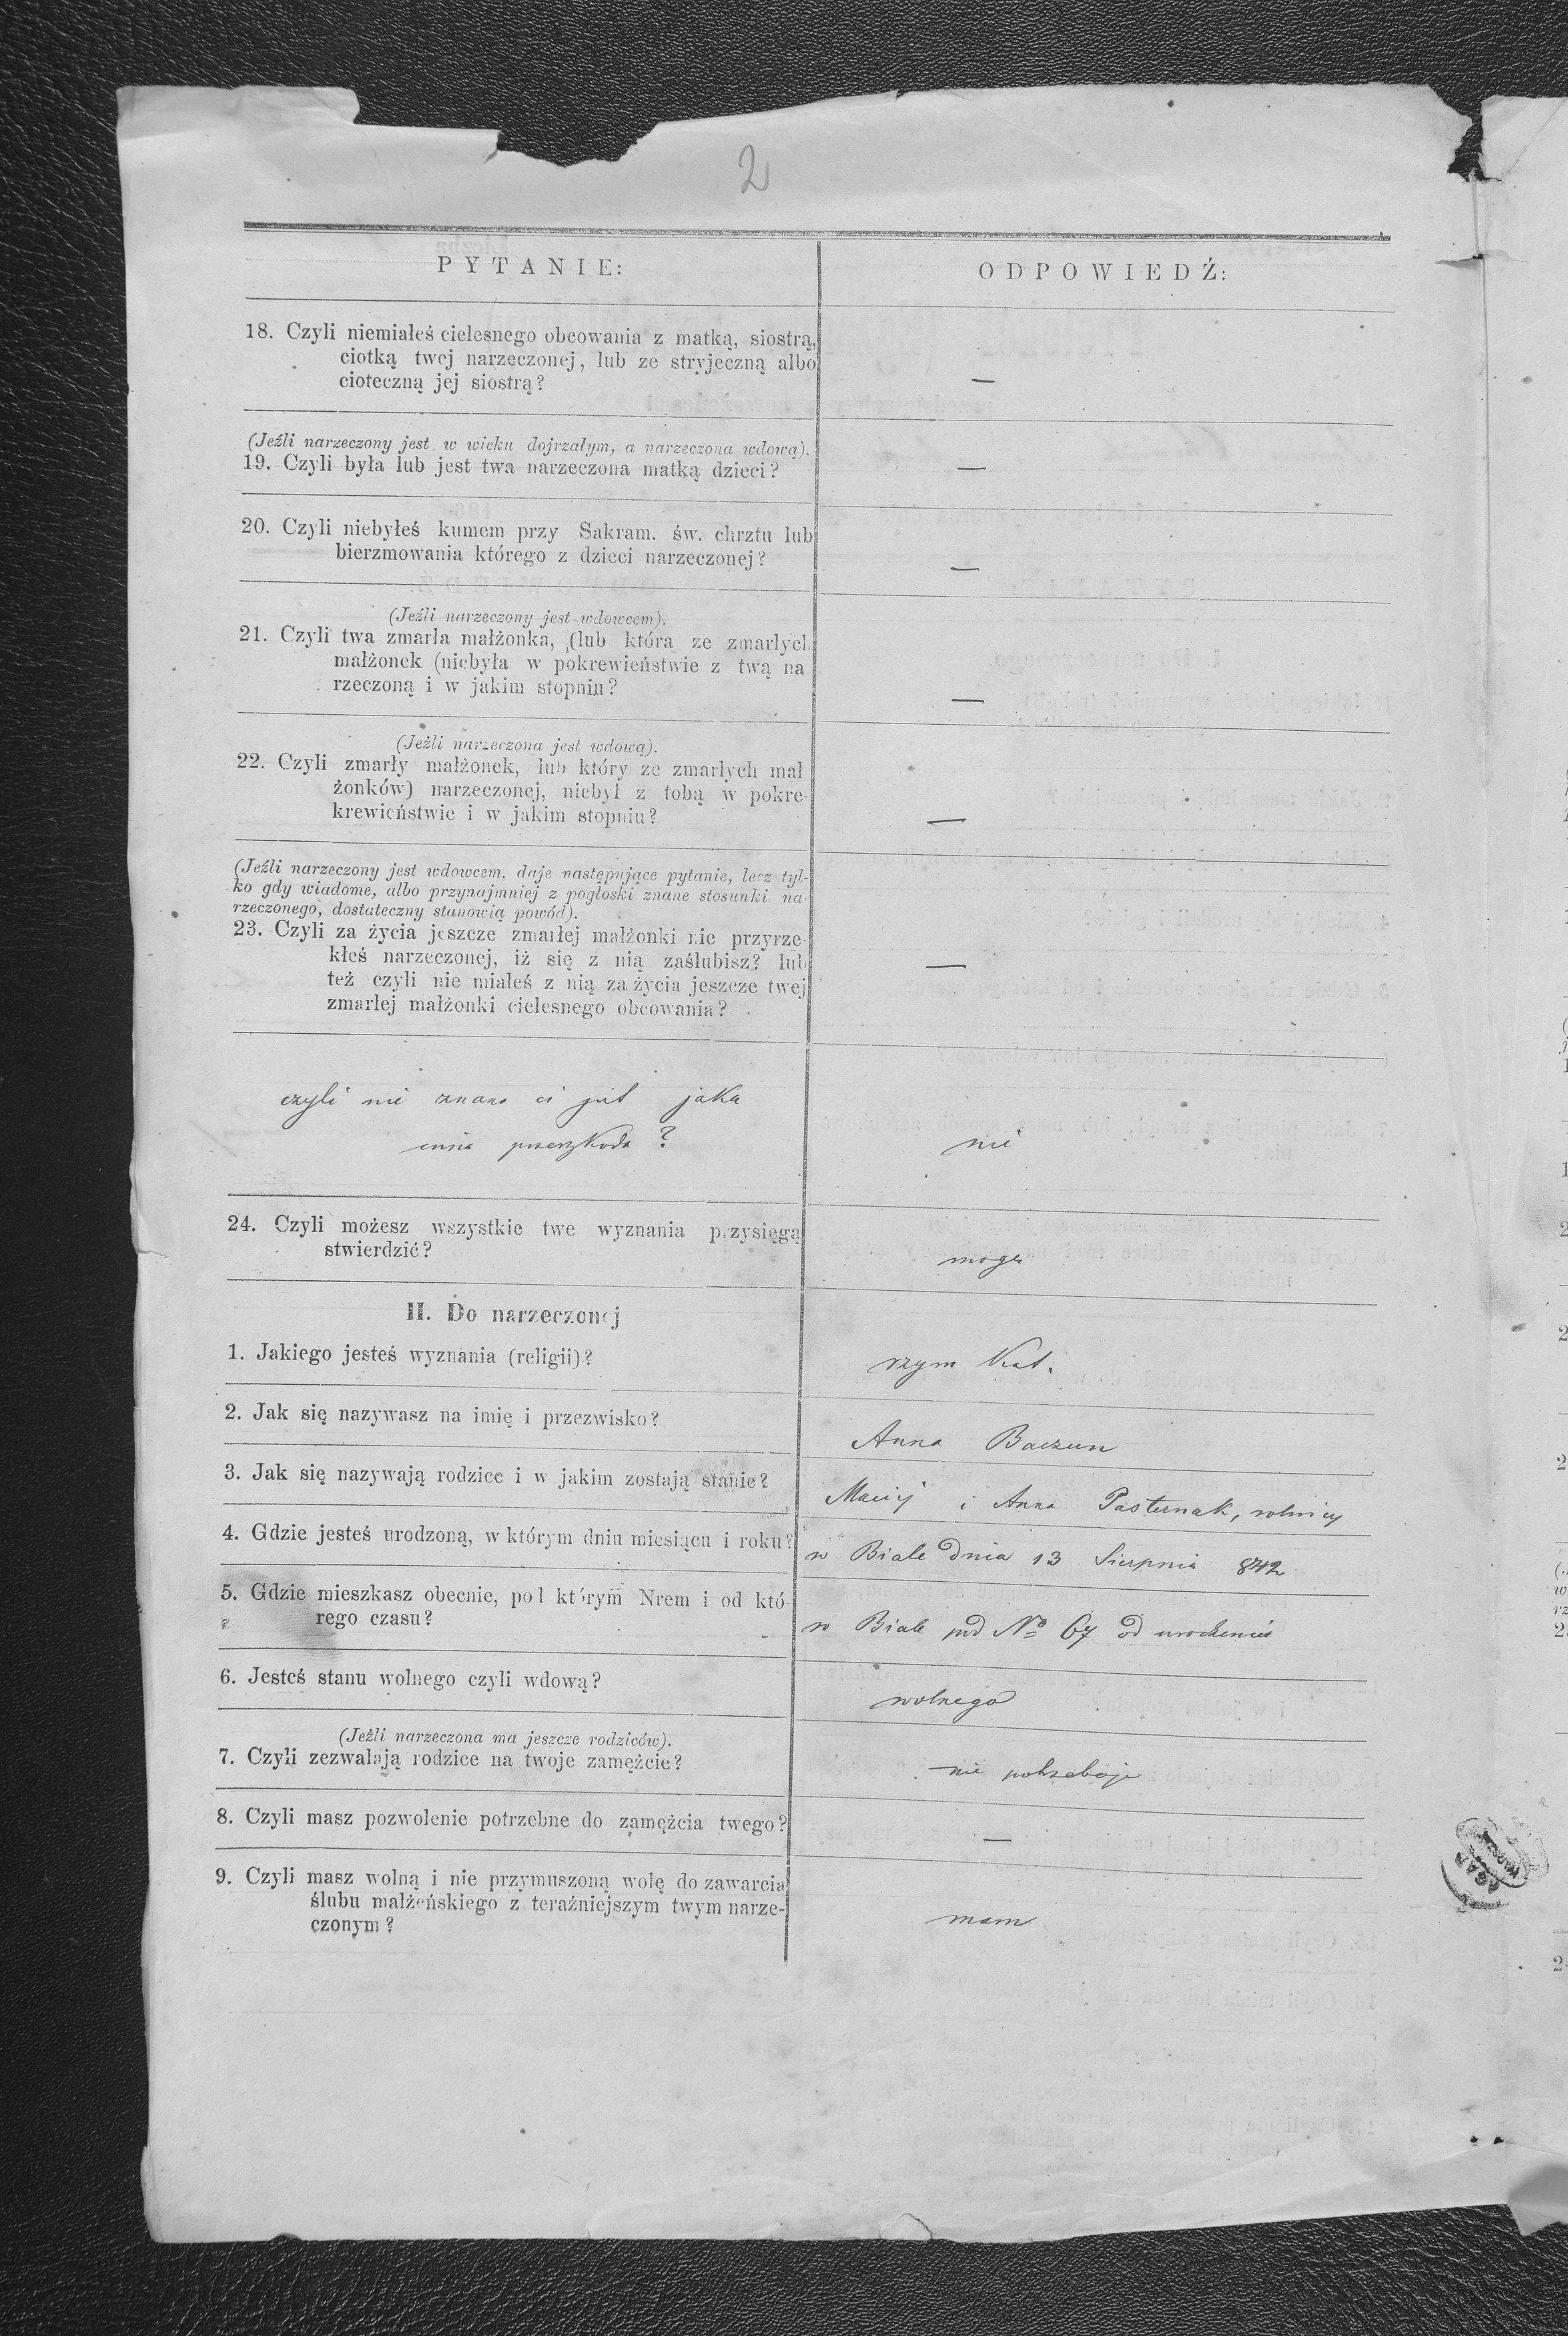 2
PYTANIE:
ODPOWIEDŹ:
18. Czyli niemiałeś cielesnego obcowania z matką, siostrą,
ciotką twej narzeczonej, lub ze stryjeczną albo
cioteczną jej siostrą?
—
(Jeźli narzeczony jest w wieku dojrzałym, a narzeczona wdową).
19. Czyli była lub jest twa narzeczona matką dzieci?
—
20. Czyli niebyłeś kumem przy Sakram. św. chrztu lub
bierzmowania którego z dzieci narzeczonej?
—
(Jeźli narzeczony jest wdowcem).
21. Czyli twa zmarła małżonka, (lub która ze zmarłych
małżonek (niebyła w pokrewieństwie z twą na
rzeczoną i w jakim stopniu?
—
(Jeźli narzeczona jest wdową).
22. Czyli zmarły małżonek, lub który ze zmarłych mał
żonków) narzeczonej, niebył z tobą w pokre-
krewieństwie i w jakim stopniu?
—
(Jeźli narzeczony jest wdowcem, daje następujące pytanie, lecz tyl-
ko gdy wiadome, albo przynajmniej z pogłoski znane stosunki na-
rzeczonego, dostateczny stanowią powód).
23. Czyli za życia jeszcze zmarłej małżonki nie przyrze-
kłeś narzeczonej, iż się z nią zaślubisz? lub
też czyli nie miałeś z nią za życia jeszcze twej
zmarłej małżonki cielesnego obcowania?
—
czyli nie znana ci jest jaka
inna przeszkoda?
nie
24. Czyli możesz wszystkie twe wyznania przysięgą
stwierdzić?
mogę
II. Do narzeczonej
1. Jakiego jesteś wyznania (religii)?
rzym kat.
2. Jak się nazywasz na imię i przezwisko?
Anna Baczun
3. Jak się nazywają rodzice i w jakim zostają stanie?
Maciej i Anna Pasternak, rolnicy
4. Gdzie jesteś urodzoną, w którym dniu miesiącu i roku?
w Biale dnia 13 Sierpnia 842
5. Gdzie mieszkasz obecnie, pod którym Nrem i od któ
rego czasu?
w Biale pod No 67 od urodzenia
6. Jesteś stanu wolnego czyli wdową?
wolnego
(Jeźli narzeczona ma jeszcze rodziców).
7. Czyli zezwalają rodzice na twoje zamężcie?
nie potrzebuje
8. Czyli masz pozwolenie potrzebne do zamężcia twego?
—
9. Czyli masz wolną i nie przymuszoną wolę do zawarcia
ślubu małżeńskiego z teraźniejszym twym narze-
czonym?
mam